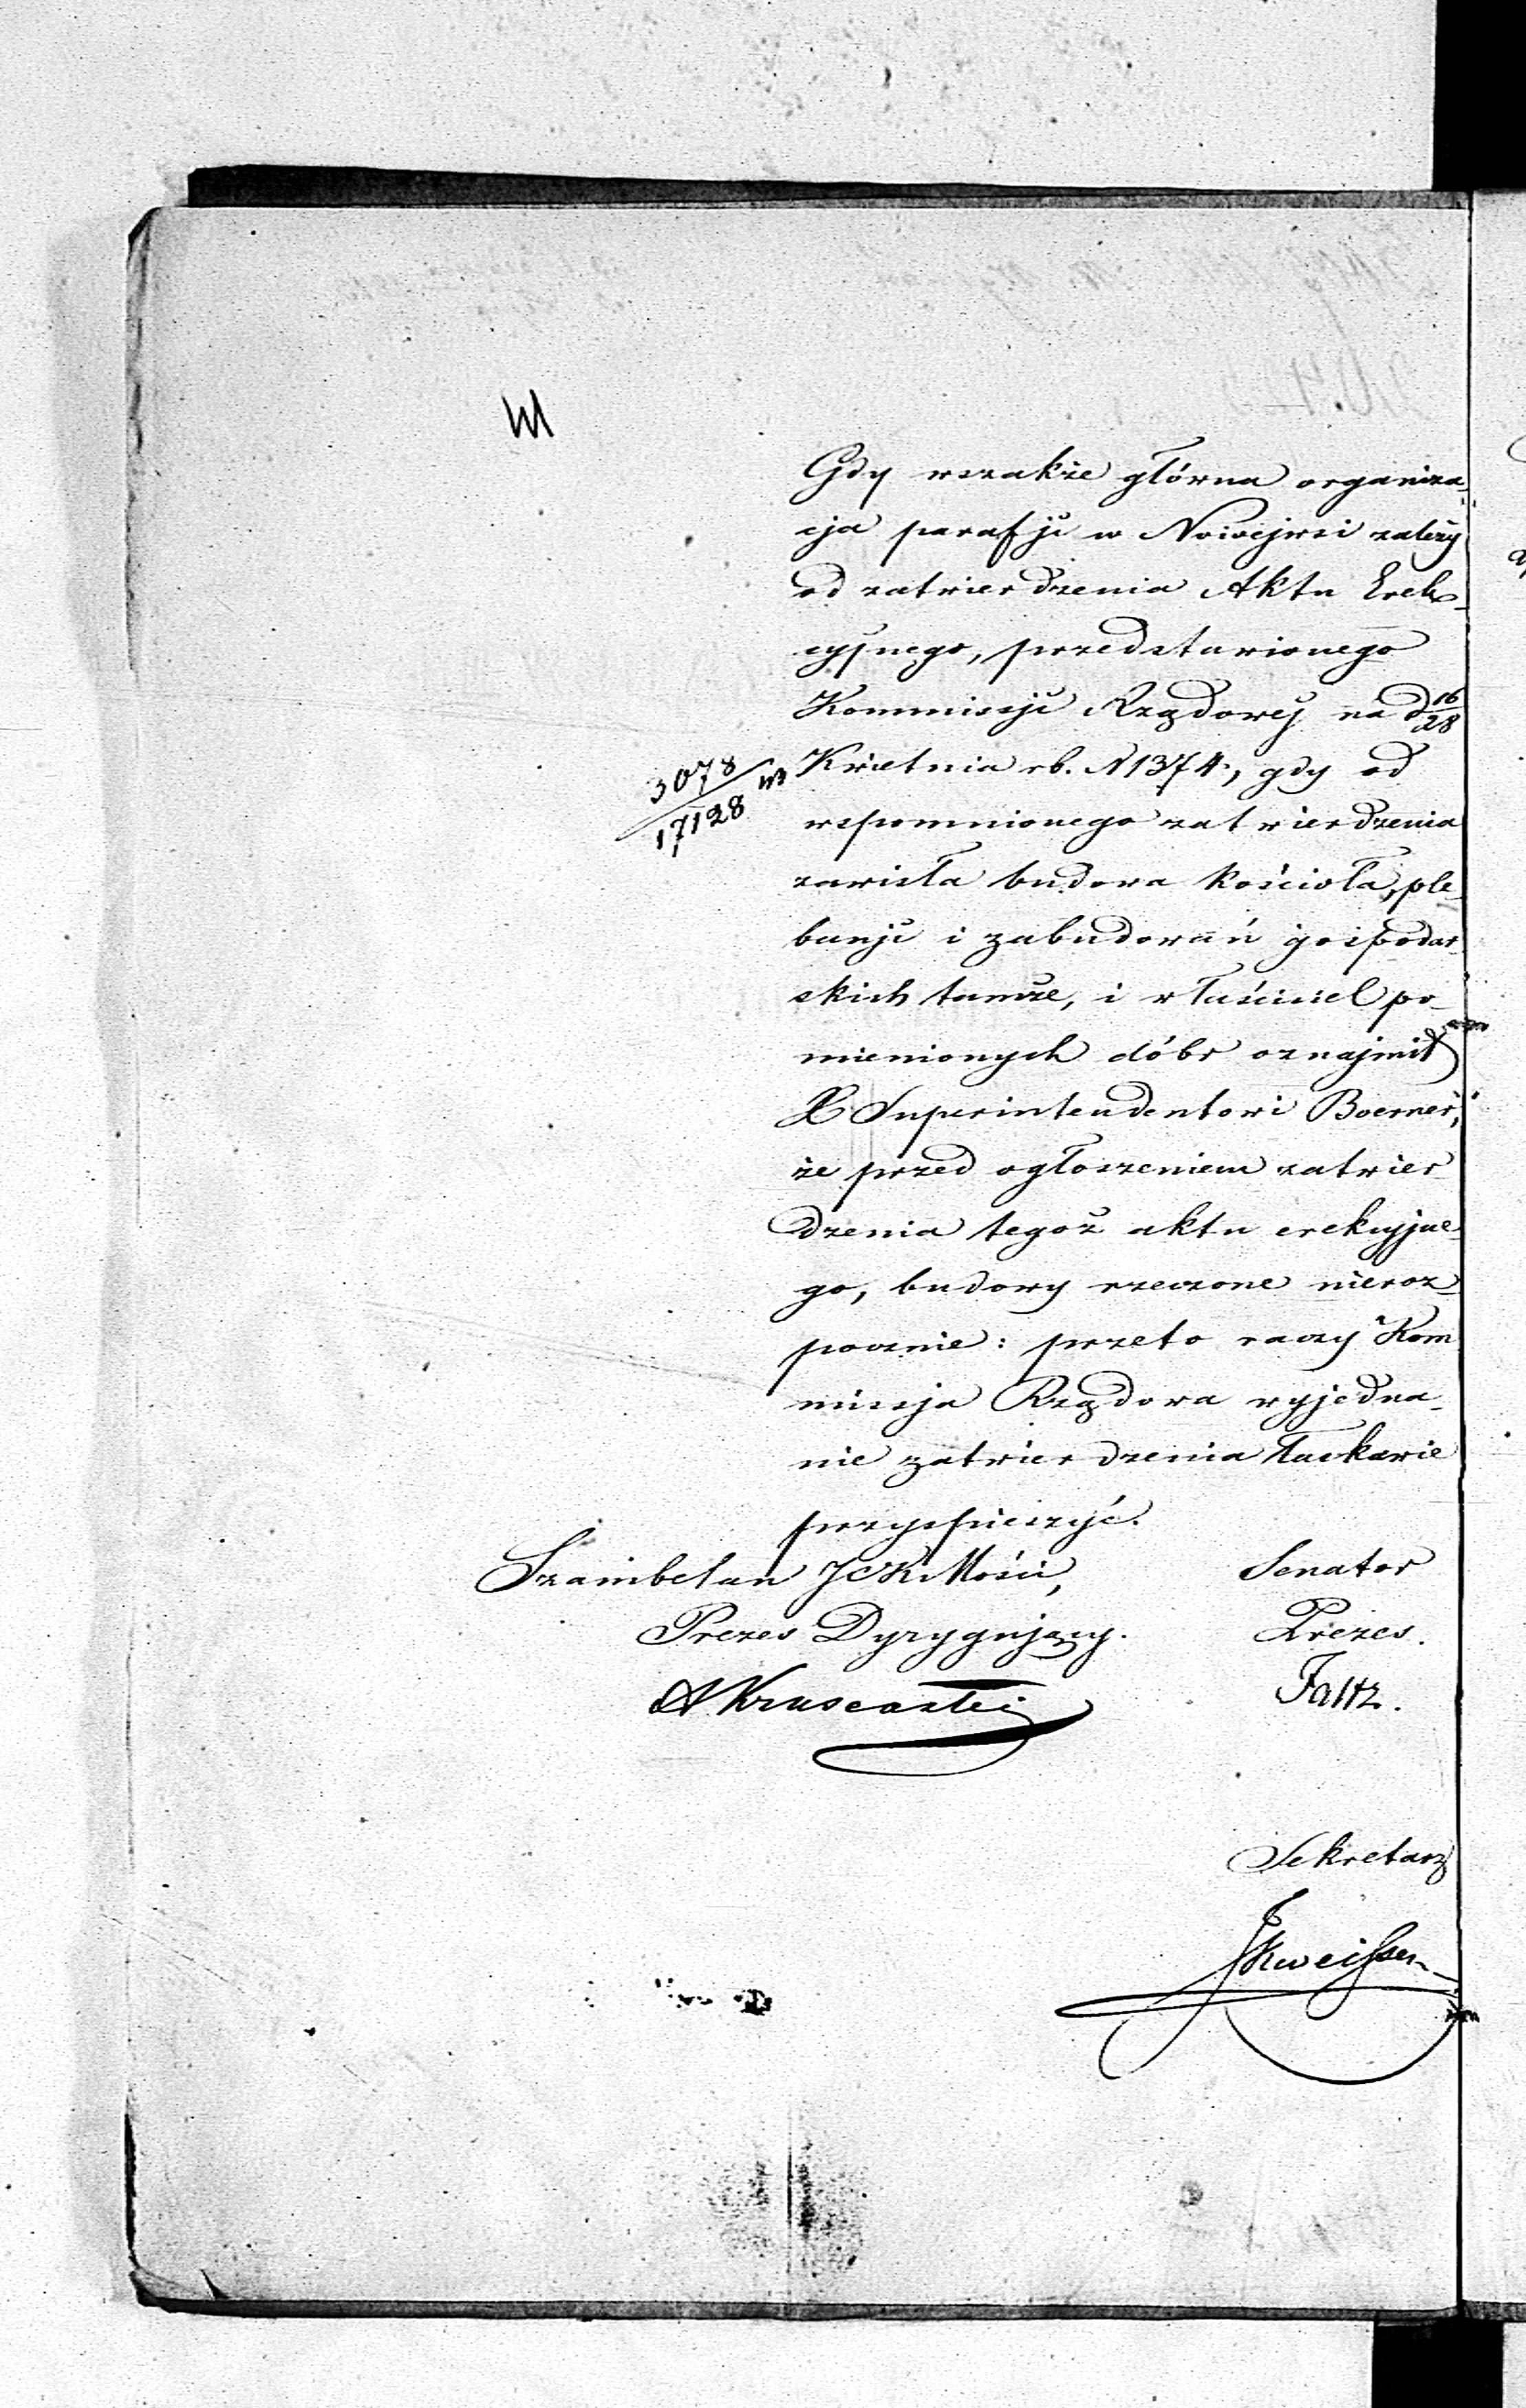 Gdy wszakże główna organiza-
cja parafji w Nowejwsi zależy
od zatwierdzenia Aktu Erek-
cyjnego, przedstawionego
Kommissji Rządowej na d 16/28
3078/17128 Kwietnia rb. N 1374, gdy od
wspomnionego zatwierdzenia
zawisła budowa kościoła, ple-
banji i zabudowań gospodar-
skich tamże, i właściciel po-
mienionych dóbr oznajmił
X Superintendentowi Boerner,
że przed ogłoszeniem zatwier-
dzenia tegoż aktu erekcyjne-
go, budowy rzeczone nieroz-
pocznie: przeto raczy Kom
missja Rządowa wyjedna-
nie zatwierdzenia łaskawie
przyspieszyć.
Szambelan JCKMości, Senator
Prezes Dyrygujący. Prezes.
Faltz.
Sekretarz